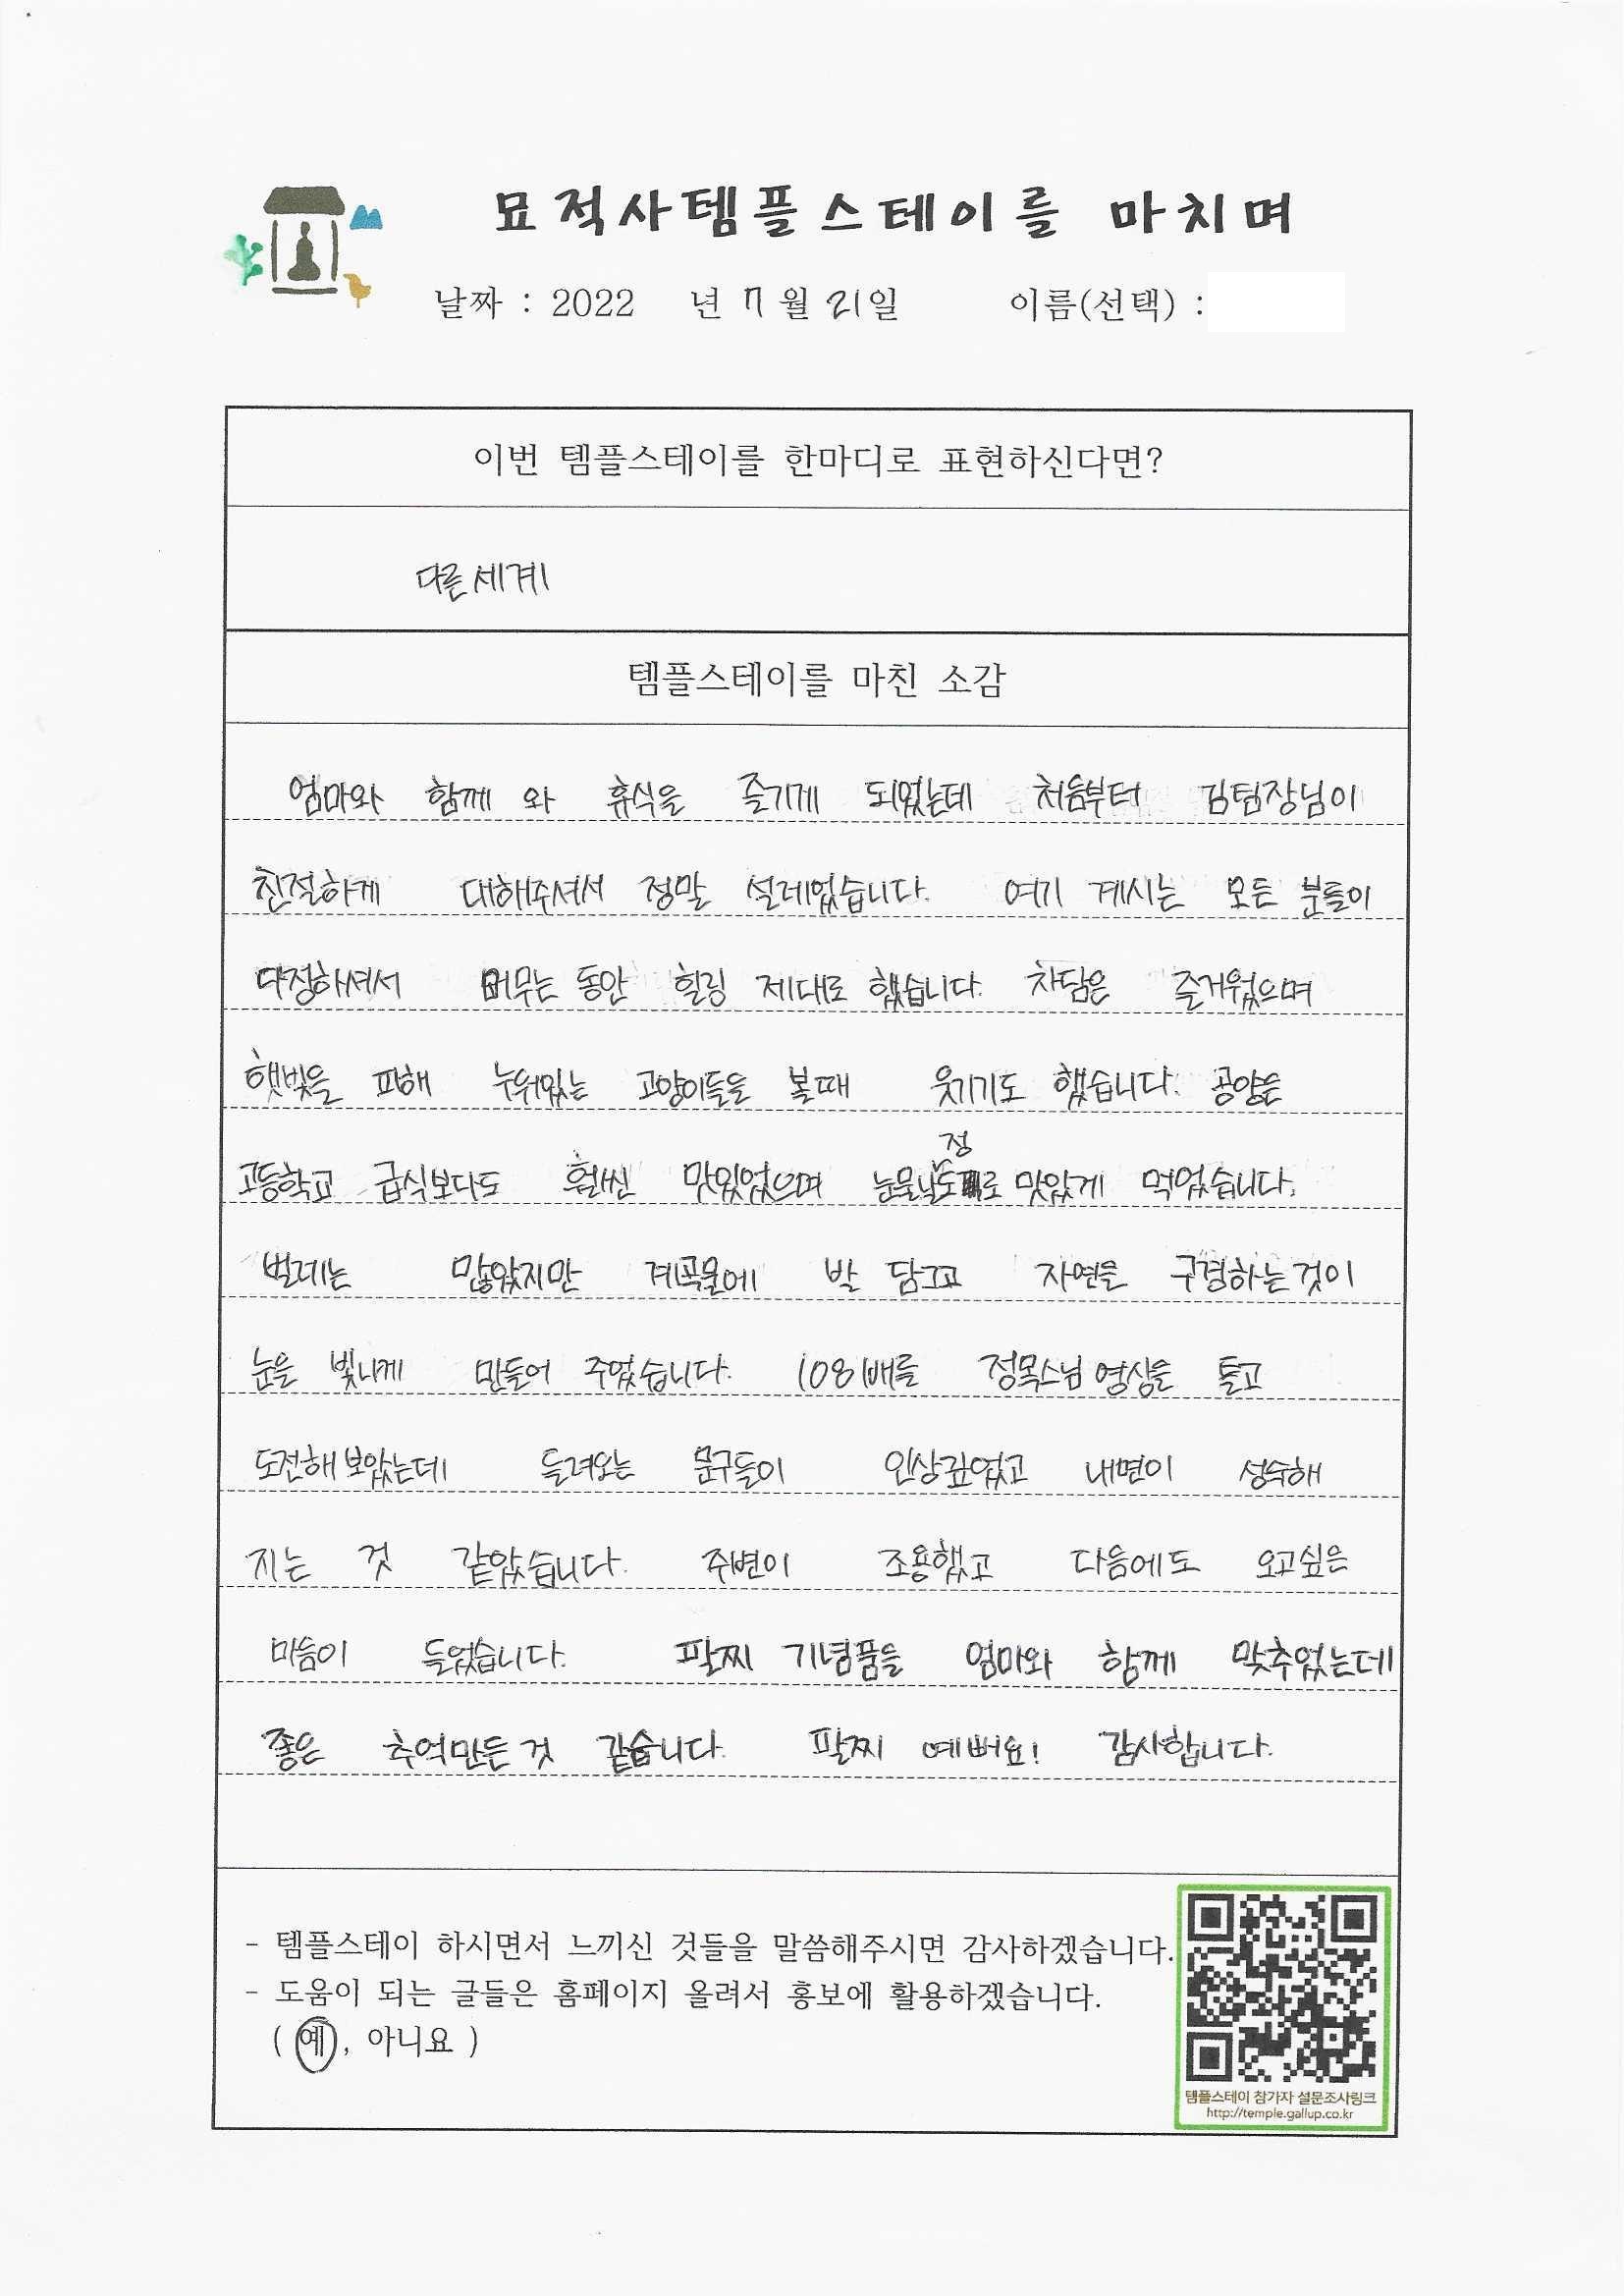 묘적사템플스테이를 마치며
날짜 : 2022 년 7월 21일 이름(선택) :
이번 템플스테이를 한마디로 표현하신다면?
다른세계
템플스테이를 마친 소감
엄마와 함께 와 휴식을 즐기게 되었는데 처음부터 김팀장님이
친절하게 대해주셔서 정말 설레었습니다. 여기 계시는 모든 분들이
다정하셔서 머무는 동안 힐링 제대로 했습니다. 차담은 즐거웠으며
햇빛을 피해 누워있는 고양이들을 볼때 웃기기도 했습니다. 공양은
고등학교 급식보다도 훨씬 맛있었으며 눈물날정도로 맛있게 먹었습니다.
벌레는 많았지만 계곡물에 발 담그고 자연을 구경하는것이
눈을 빛나게 만들어 주었습니다. 108배를 정목스님 영상을 틀고
도전해보았는데 들려오는 문구들이 인상깊었고 내면이 성숙해
지는 것 같았습니다. 주변이 조용했고 다음에도 오고싶은
마음이 들었습니다. 팔찌 기념품을 엄마와 함께 맞추었는데
좋은 추억만든것 같습니다. 팔찌 예뻐요! 감사합니다.
- 템플스테이 하시면서 느끼신 것들을 말씀해주시면 감사하겠습니다.
- 도움이 되는 글들은 홈페이지 올려서 홍보에 활용하겠습니다.
( 예, 아니요 )
템플스테이 참가자 설문조사링크
http://temple.gallup.co.kr